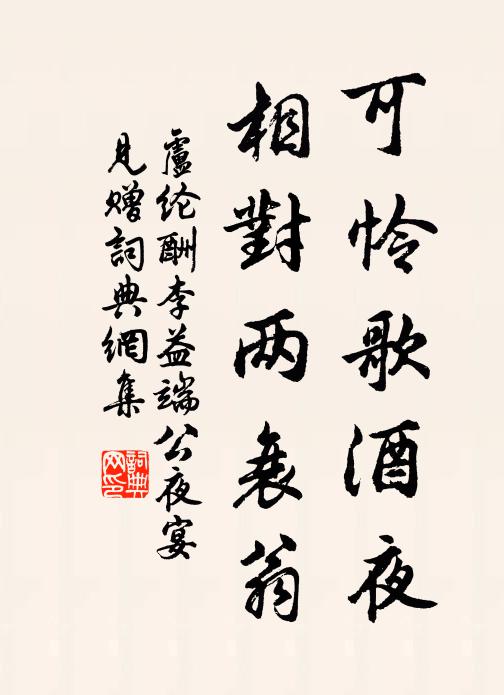 可怜歌酒夜
相對两衰翁
盧纶酬李益端公夜宴
見赠詞典網集
詞典
网印